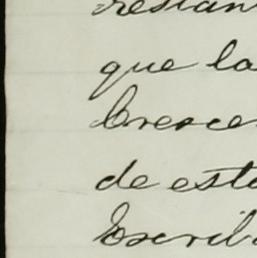 restan
que la
Cresce
de est
Escrib